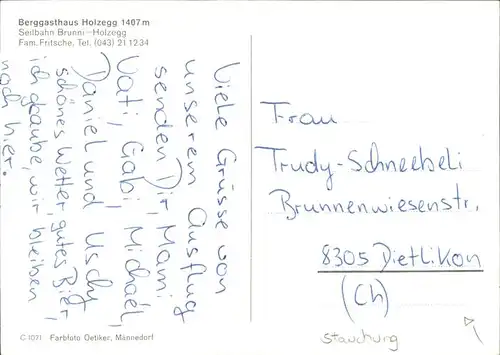 Berggasthaus Holzegg 1407 m
Seilbahn Brunni–Holzegg
Fam. Fritsche, Tel. (043) 21 12 34
Viele Grüsse von
unserem Ausflug
senden Dir, Mami
Vati, Gabi, Michael,
Daniel und Uschy
schönes Wetter, gutes Bier,
ich glaube, wir bleiben
noch hier.
Frau
Trudy-Schneebeli
Brunnenwiesenstr.
8305 Dietlikon
(Ch)
Stauchung
C 1071 Farbfoto Oetiker, Männedorf